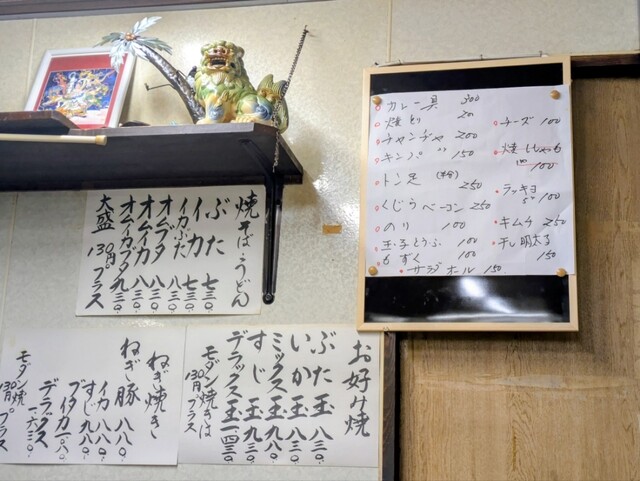 カレー具 300
焼とり 20
チャンヂャ 200
キンパ 150
トン足 250
くじらベーコン 250
のり 100
玉子とうふ 100
もずく 100
サラダオール 150
チーズ 100
焼ししゃも
100
ラッキョ
5ヶ 100
キムチ 250
干し明太子
150
焼そば・うどん
ぶた 七三〇
イカ 七三〇
イカぶた 八三〇
オムブタ 八三〇
オムイカ 八三〇
オムイカブタ 九三〇
大盛 130円プラス
お好み焼
ぶた玉 八三〇
いか玉 八三〇
ミックス玉 九八〇
すじ玉 九三〇
デラックス玉 一四三〇
モダン焼きは
130円プラス
ねぎ焼き
ねぎ豚 八八〇
イカ 八八〇
すじ 九八〇
ブタイカ 一〇八〇
デラックス 一六三〇
モダン焼
130円プラス